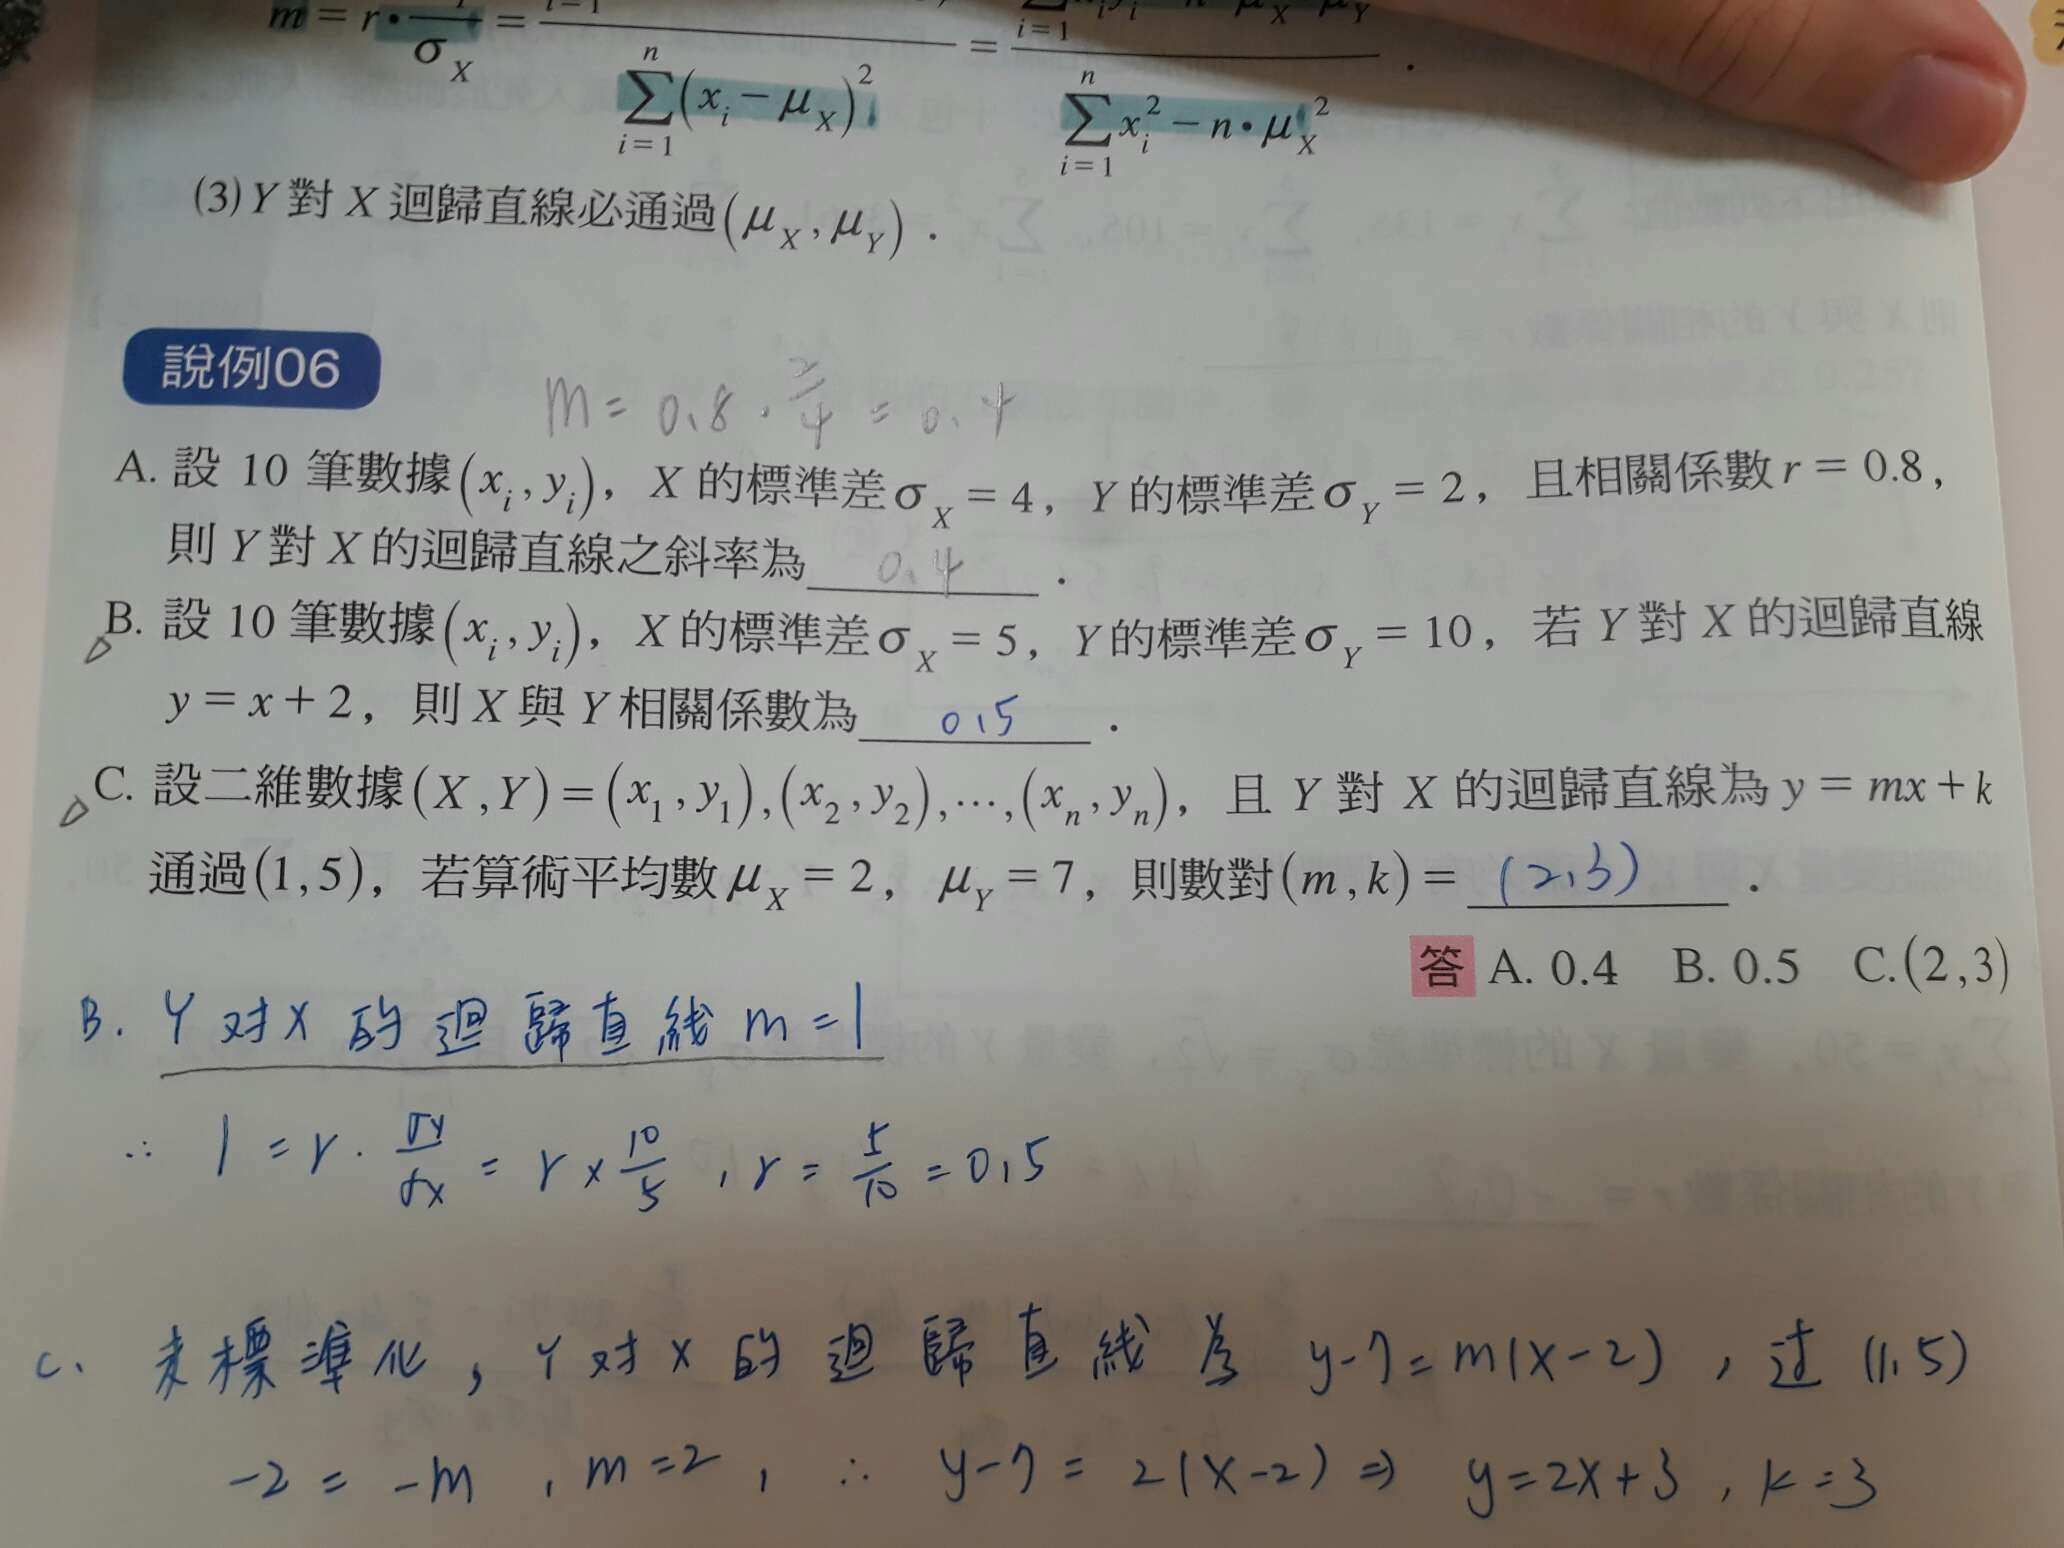 m = r • σ_X = i=1 / Σ_{i=1}^{n} (x_i − μ_X)² = i=1 / Σ_{i=1}^{n} x_i² − n • μ_X² .
(3) Y 對 X 迴歸直線必通過 (μ_X , μ_Y) .
說例06
m = 0.8 · 2/4 = 0.4
A. 設 10 筆數據 (x_i , y_i)，X 的標準差 σ_X = 4，Y 的標準差 σ_Y = 2，且相關係數 r = 0.8，
則 Y 對 X 的迴歸直線之斜率為 0.4 .
B. 設 10 筆數據 (x_i , y_i)，X 的標準差 σ_X = 5，Y 的標準差 σ_Y = 10，若 Y 對 X 的迴歸直線
y = x + 2，則 X 與 Y 相關係數為 0.5 .
C. 設二維數據 (X , Y) = (x_1 , y_1) , (x_2 , y_2) , … , (x_n , y_n)，且 Y 對 X 的迴歸直線為 y = mx + k
通過 (1 , 5)，若算術平均數 μ_X = 2，μ_Y = 7，則數對 (m , k) = (2,3) .
答 A. 0.4 B. 0.5 C. (2 , 3)
B. Y 对 X 的迴歸直线 m = 1
∴ 1 = r · σy/σx = r × 10/5 , r = 5/10 = 0.5
C. 未標準化, Y 对 X 的迴歸直线為 y-7 = m(x-2) , 过 (1,5)
-2 = -m , m = 2 , ∴ y-7 = 2(x-2) ⇒ y = 2x+3 , k = 3